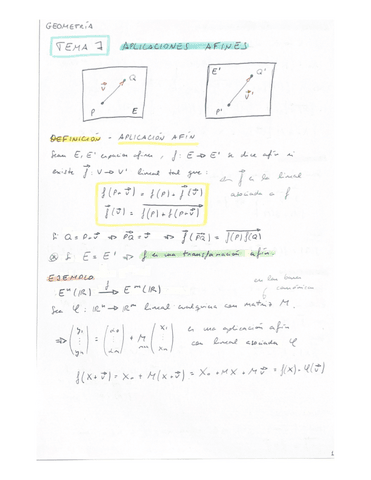 GEOMETRÍA
TEMA 7 APLICACIONES AFINES
Q
v⃗
P E
E' Q'
v⃗'
P'
DEFINICIÓN - APLICACIÓN AFÍN
Sean E, E' espacios afines, f: E → E' se dice afín si
existe f⃗: V → V' lineal tal que:
f⃗ es la lineal
asociada a f
f(P+v⃗) = f(P) + f⃗(v⃗)
f⃗(v⃗) = f(P) + f(P+v⃗)
Si Q = P+v⃗ ⇒ PQ = v⃗ ⇒ f⃗(PQ) = f(P)f(Q)
Si E = E' ⇒ f es una transformación afín.
EJEMPLO
en las bases
canónicas
: Eⁿ(ℝ) →f Eᵐ(ℝ)
Sea φ: ℝⁿ → ℝᵐ lineal cualquiera con matriz M.
y₁ x₁ es una aplicación afín
⇒ ⋮ = ⋮ + M ⋮
yₘ xₙ con lineal asociada φ
f(X+v⃗) = X₀ + M(X+v⃗) = X₀ + MX + Mv⃗ = f(X) + φ(v⃗)
1